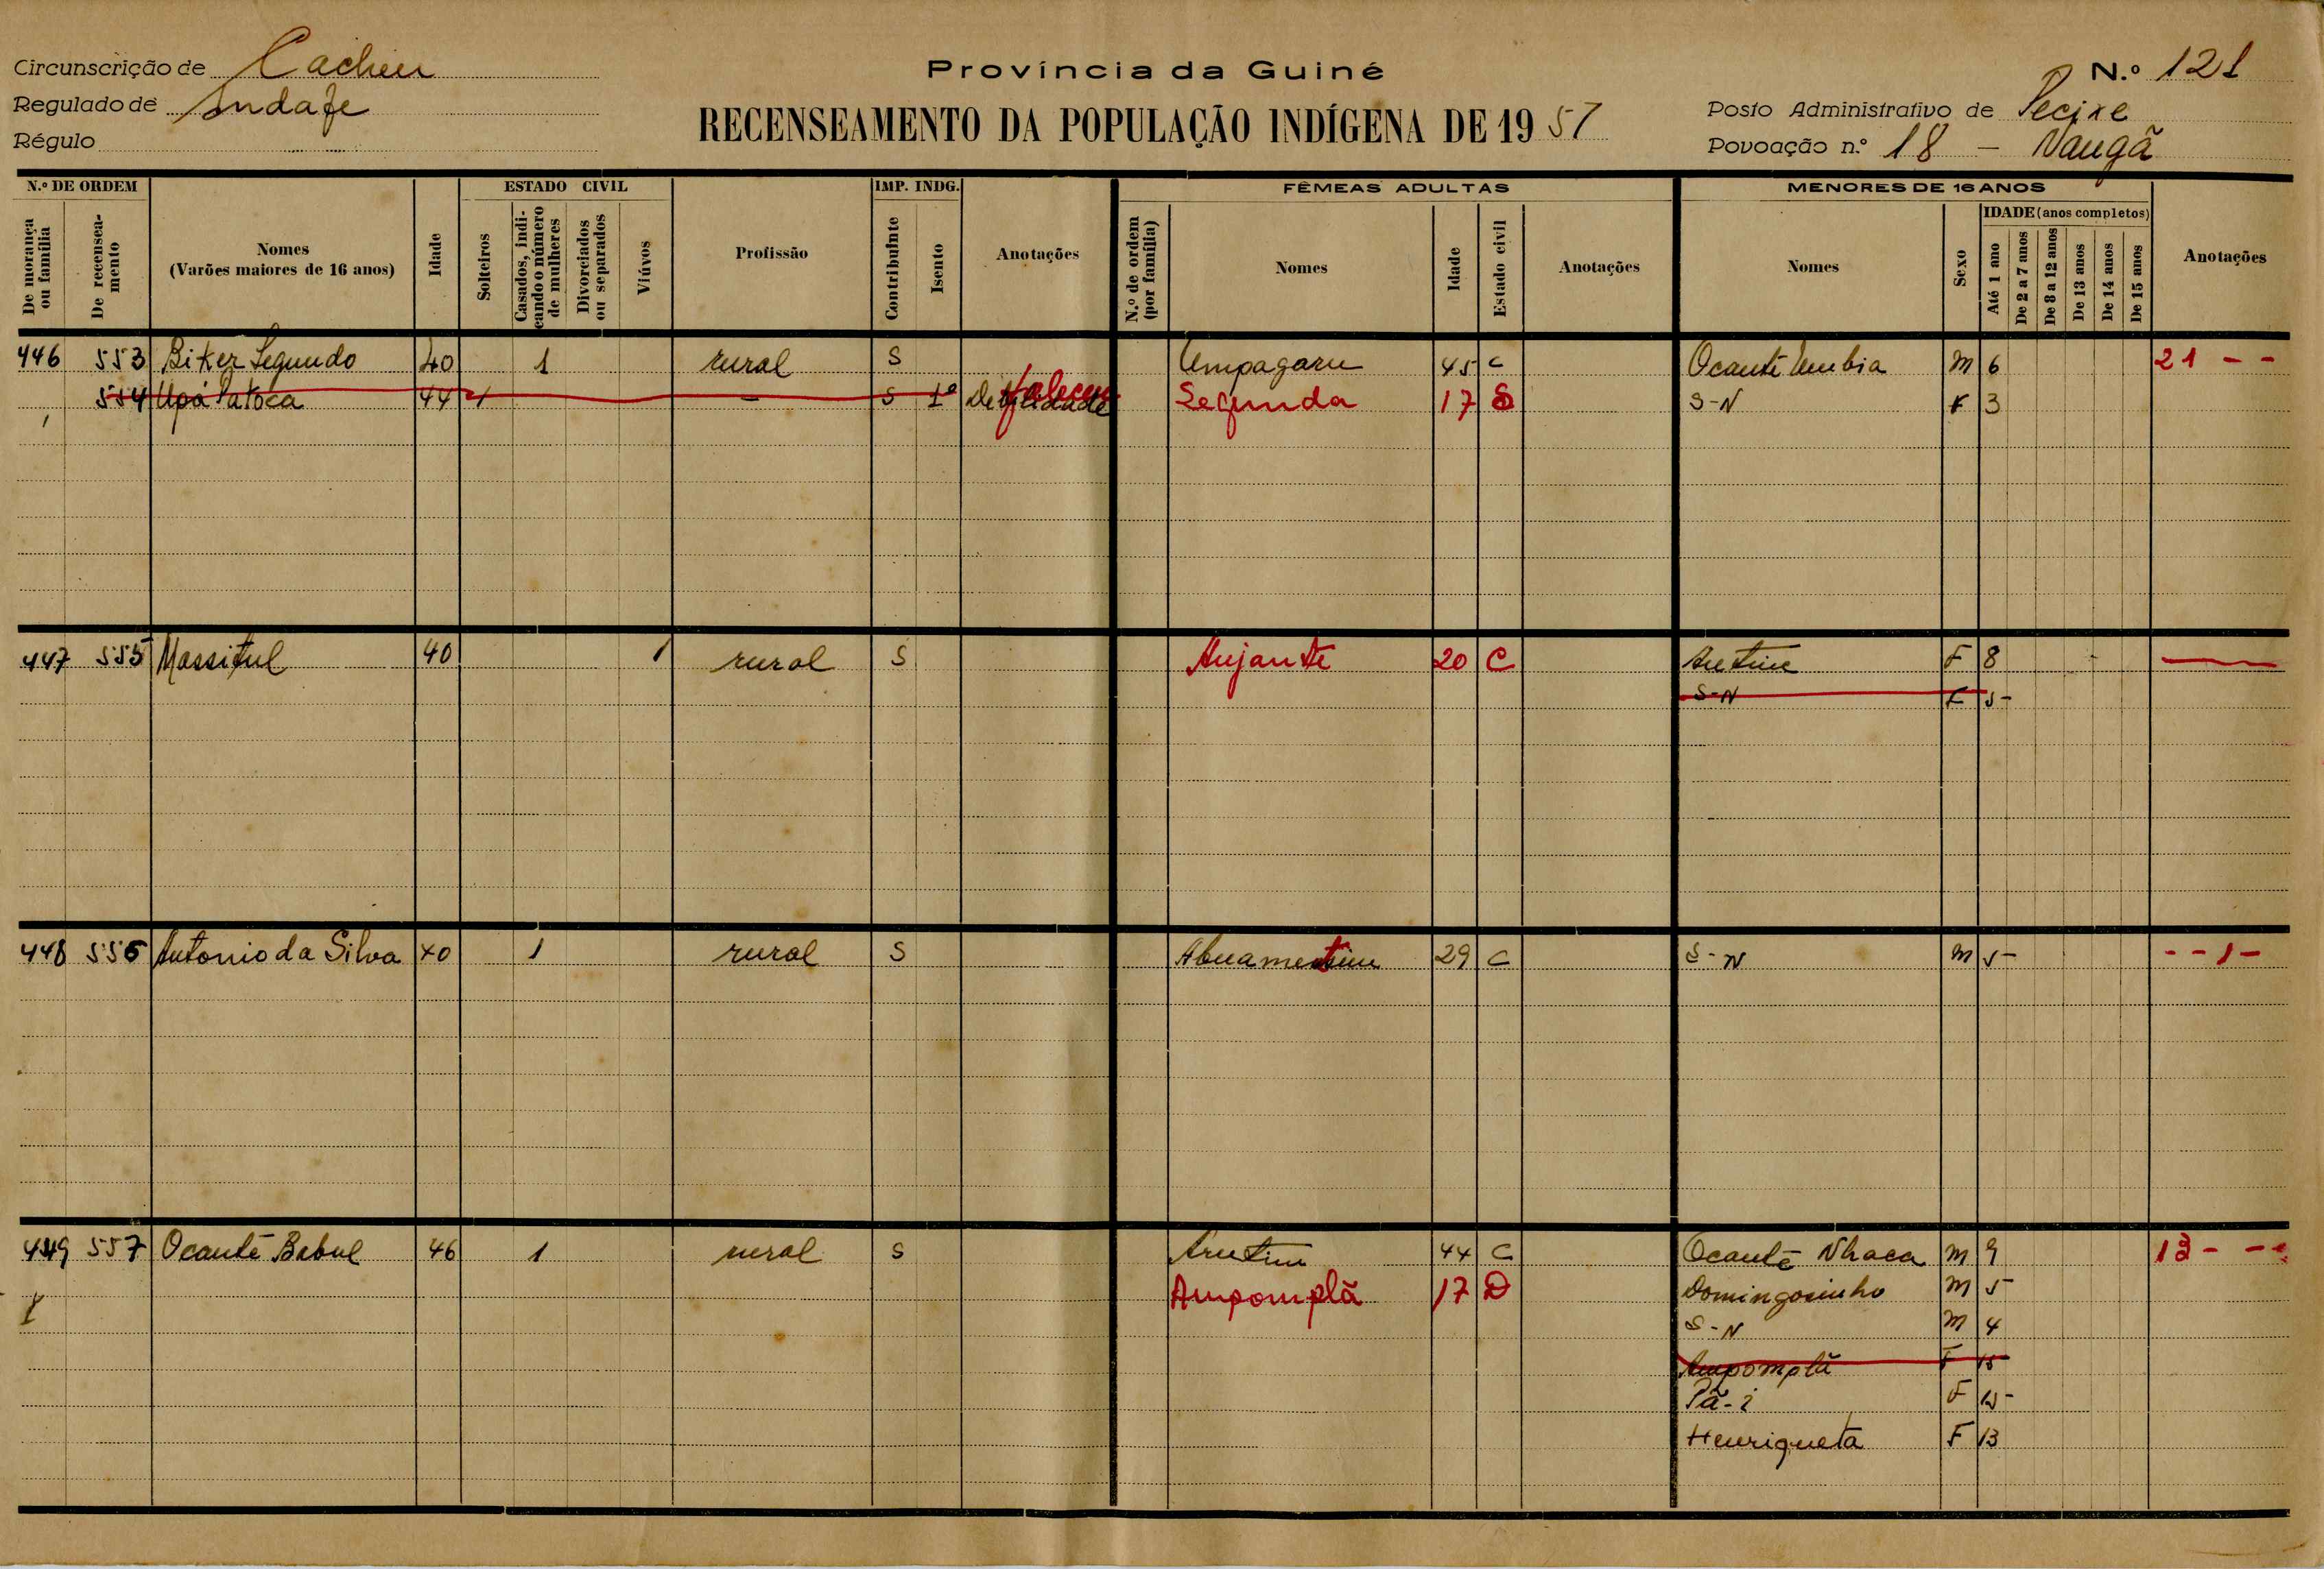 Circunscrição de Cacheu
Regulado de Indafe
Régulo
Província da Guiné
RECENSEAMENTO DA POPULAÇÃO INDÍGENA DE 1957
N.º 121
Posto Administrativo de Pecixe
Povoação n.º 18 - Naugã
N.º DE ORDEM
De morança ou família
De recenseamento
Nomes
(Varões maiores de 16 anos)
Idade
ESTADO CIVIL
Solteiros
Casados, indicando o número de mulheres
Divorciados ou separados
Viúvos
Profissão
IMP. INDG.
Contribuinte
Isento
Anotações
FÊMEAS ADULTAS
N.º de ordem (por família)
Nomes
Idade
Estado civil
Anotações
MENORES DE 16 ANOS
Nomes
Sexo
IDADE (anos completos)
Até 1 ano
De 2 a 7 anos
De 8 a 12 anos
De 13 anos
De 14 anos
De 15 anos
Anotações
446 553 Biker Segundo 40 1 rural S Umpagaru 45 C Ocantê Umbia M 6 21 - -
554 Upá Patoca 44 1 - S 1ª Debilidade faleceu Segunda 17 S S-N F 3
447 555 Massitul 40 1 rural S Aujante 20 C Aretiue F 8
S-N F 5-
448 556 Antonio da Silva 40 1 rural S 29 C S-N M 5- - - 1 -
449 557 Ocantê Babul 46 1 rural S Arutim 44 C Ocantê Nhaca M 9 - - -
Ampomplã 17 D Domingosinho M 5
S-N M 4
Ampomplã F 15
Pã-i F 15-
Henriqueta F 13